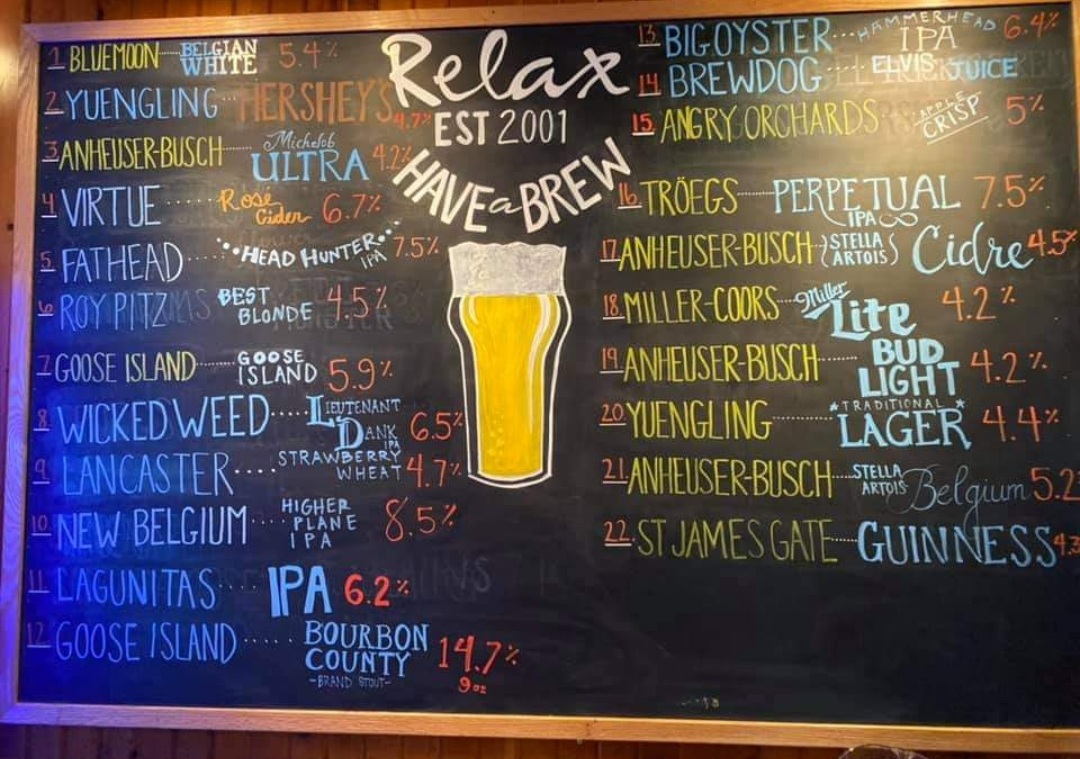 Relax
EST 2001
HAVE a BREW
1 BLUEMOON BELGIAN WHITE 5.4%
2 YUENGLING HERSHEY'S 4.7%
3 ANHEUSER-BUSCH Michelob ULTRA 4.2%
4 VIRTUE Rosé Cider 6.7%
5 FATHEAD HEAD HUNTER IPA 7.5%
6 ROY PITZ BEST BLONDE 4.5%
7 GOOSE ISLAND GOOSE ISLAND 5.9%
8 WICKED WEED LIEUTENANT DANK IPA 6.5%
9 LANCASTER STRAWBERRY WHEAT 4.7%
10 NEW BELGIUM HIGHER PLANE IPA 8.5%
11 LAGUNITAS IPA 6.2%
12 GOOSE ISLAND BOURBON COUNTY -BRAND STOUT- 14.7%
9oz
13 BIG OYSTER HAMMERHEAD IPA 6.4%
14 BREWDOG ELVIS JUICE
15. ANGRY ORCHARDS APPLE CRISP 5%
16. TRÖEGS PERPETUAL IPA 7.5%
17. ANHEUSER-BUSCH STELLA ARTOIS Cidre 4.5%
18. MILLER-COORS Miller Lite 4.2%
19. ANHEUSER-BUSCH BUD LIGHT 4.2%
20 YUENGLING TRADITIONAL LAGER 4.4%
21. ANHEUSER-BUSCH STELLA ARTOIS Belgium 5.2
22. ST JAMES GATE GUINNESS 4.3